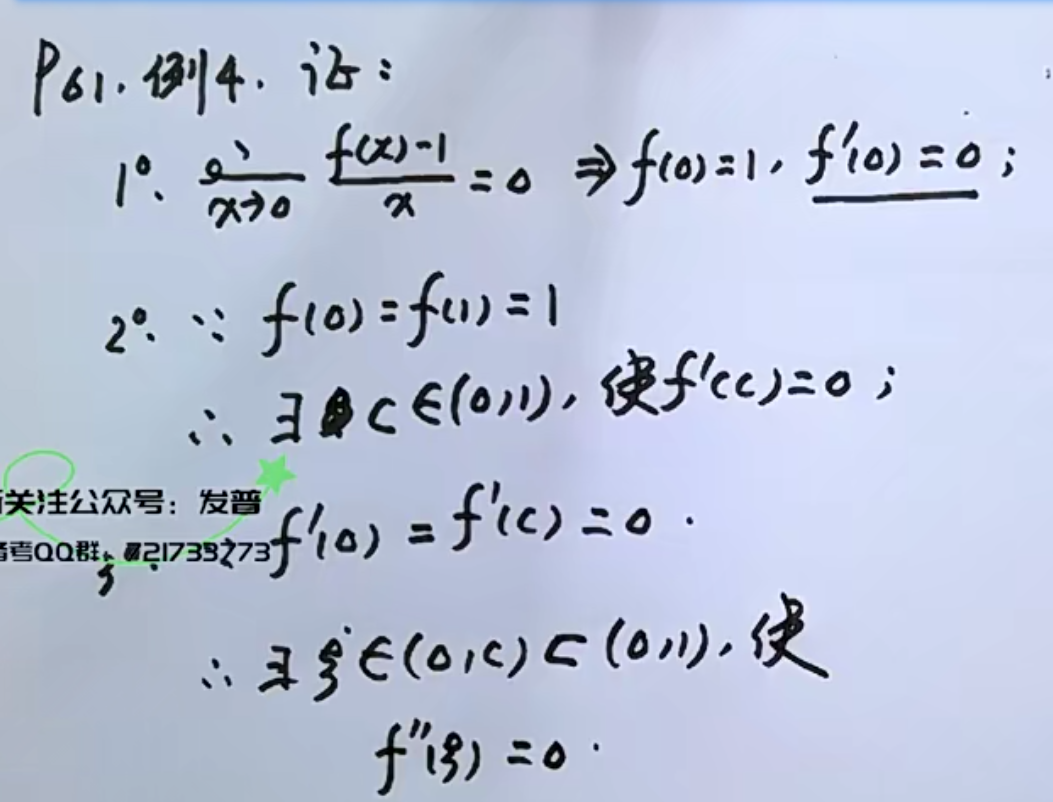 P61. 例4. 证:
1°. x→0 f(x)-1/x = 0 ⇒ f(0)=1, f'(0)=0;
2°. ∵ f(0)=f(1)=1
∴ ∃ C∈(0,1), 使f'(C)=0;
关注公众号：发普
考QQ群：
f'(0) = f'(C) = 0.
∴ ∃ξ∈(0,C)⊂(0,1), 使
f''(ξ)=0.